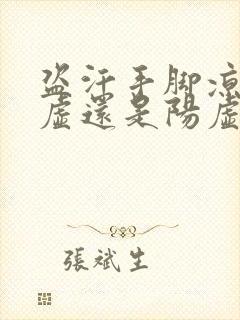 盗汗手脚凉
虚還是陽虚
張斌生